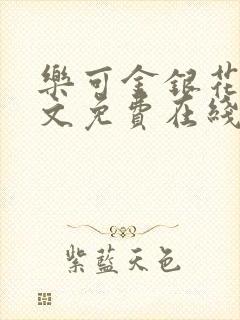 樂可金銀花
文免費在綫
紫藍天色